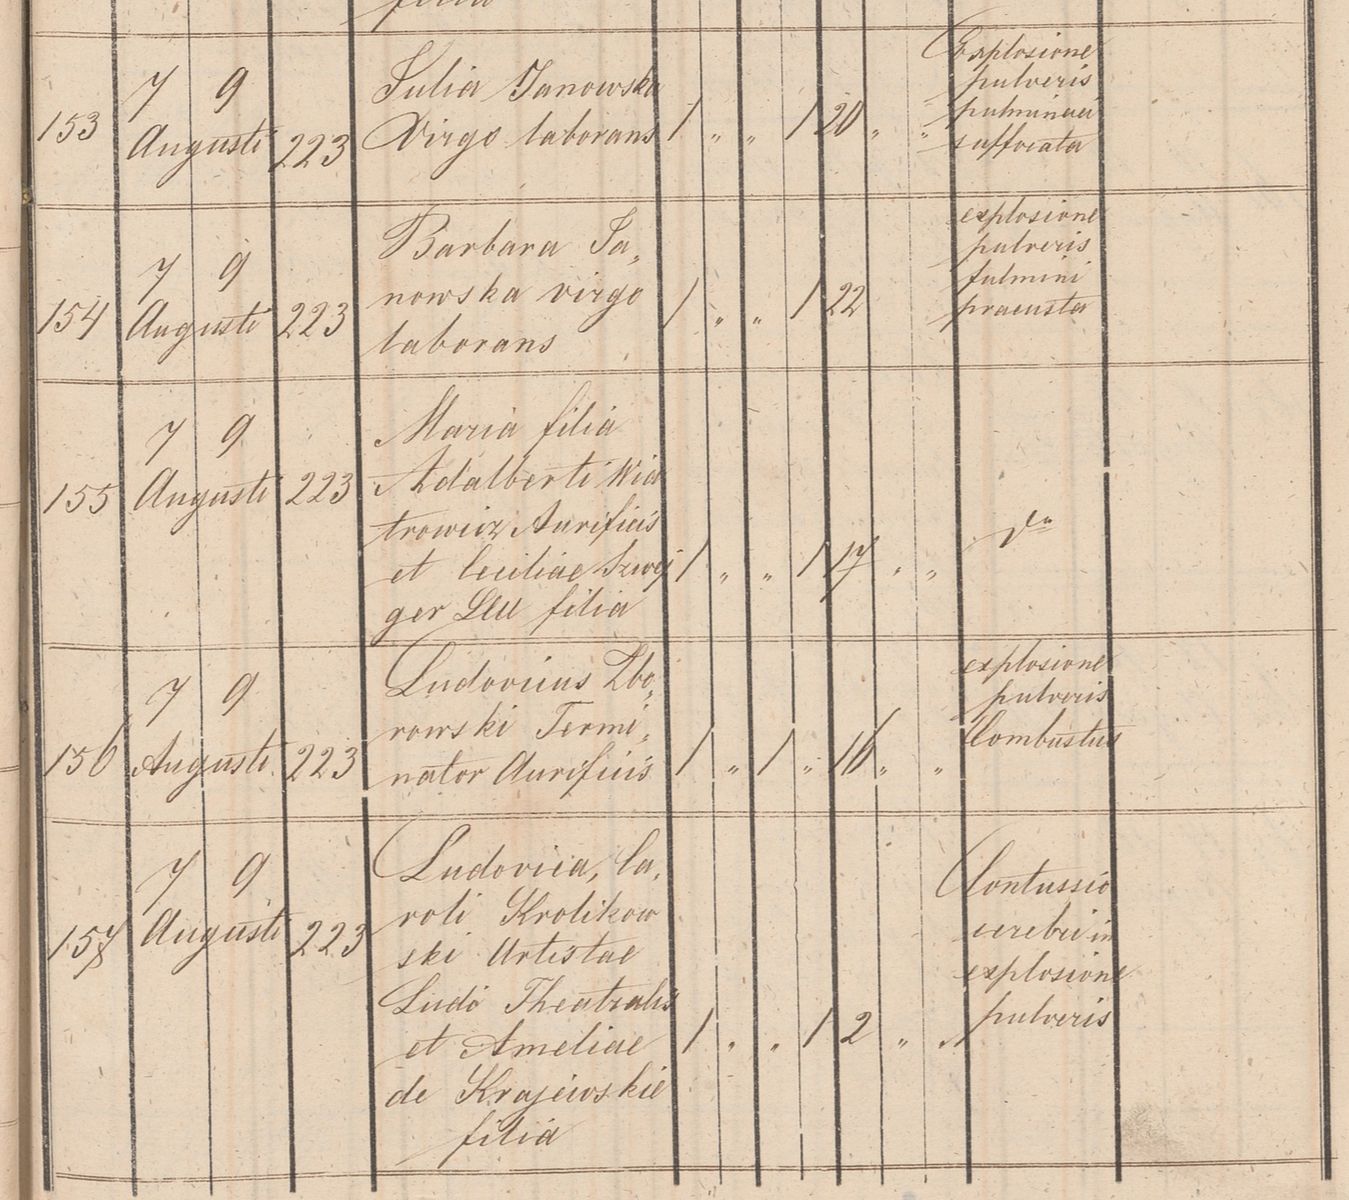 filia
153 7 9 Augusti 223 Julia Janowska 1 " " 1 20 " " Explosione
Virgo laborans pulveris
pulminaci
suffocata
154 7 9 Augusti 223 Barbara Ja„ 1 " " 1 22 explosione
nowska virgo pulveris
laborans fulmini
praeusta
155 7 9 Augusti 223 Maria filia
Adalberti Wia
trowicz Aurificis
et Ceciliae Szwej 1 " " 1 17 " " dto
ger LLU filia
156 7 9 Augusti 223 Ludovicus Zbo„ explosione
rowski Termi„ pulveris
nator Aurificis 1 " 1 " 16 " " Combustus
157 7 9 Augusti 223 Ludovica, Ca„ Contussio
roli Krolikow cerebri in
ski Artistae explosione
Ludo Theatralis pulveris
et Ameliae 1 " " 1 2 " "
de Krajewskie
filia